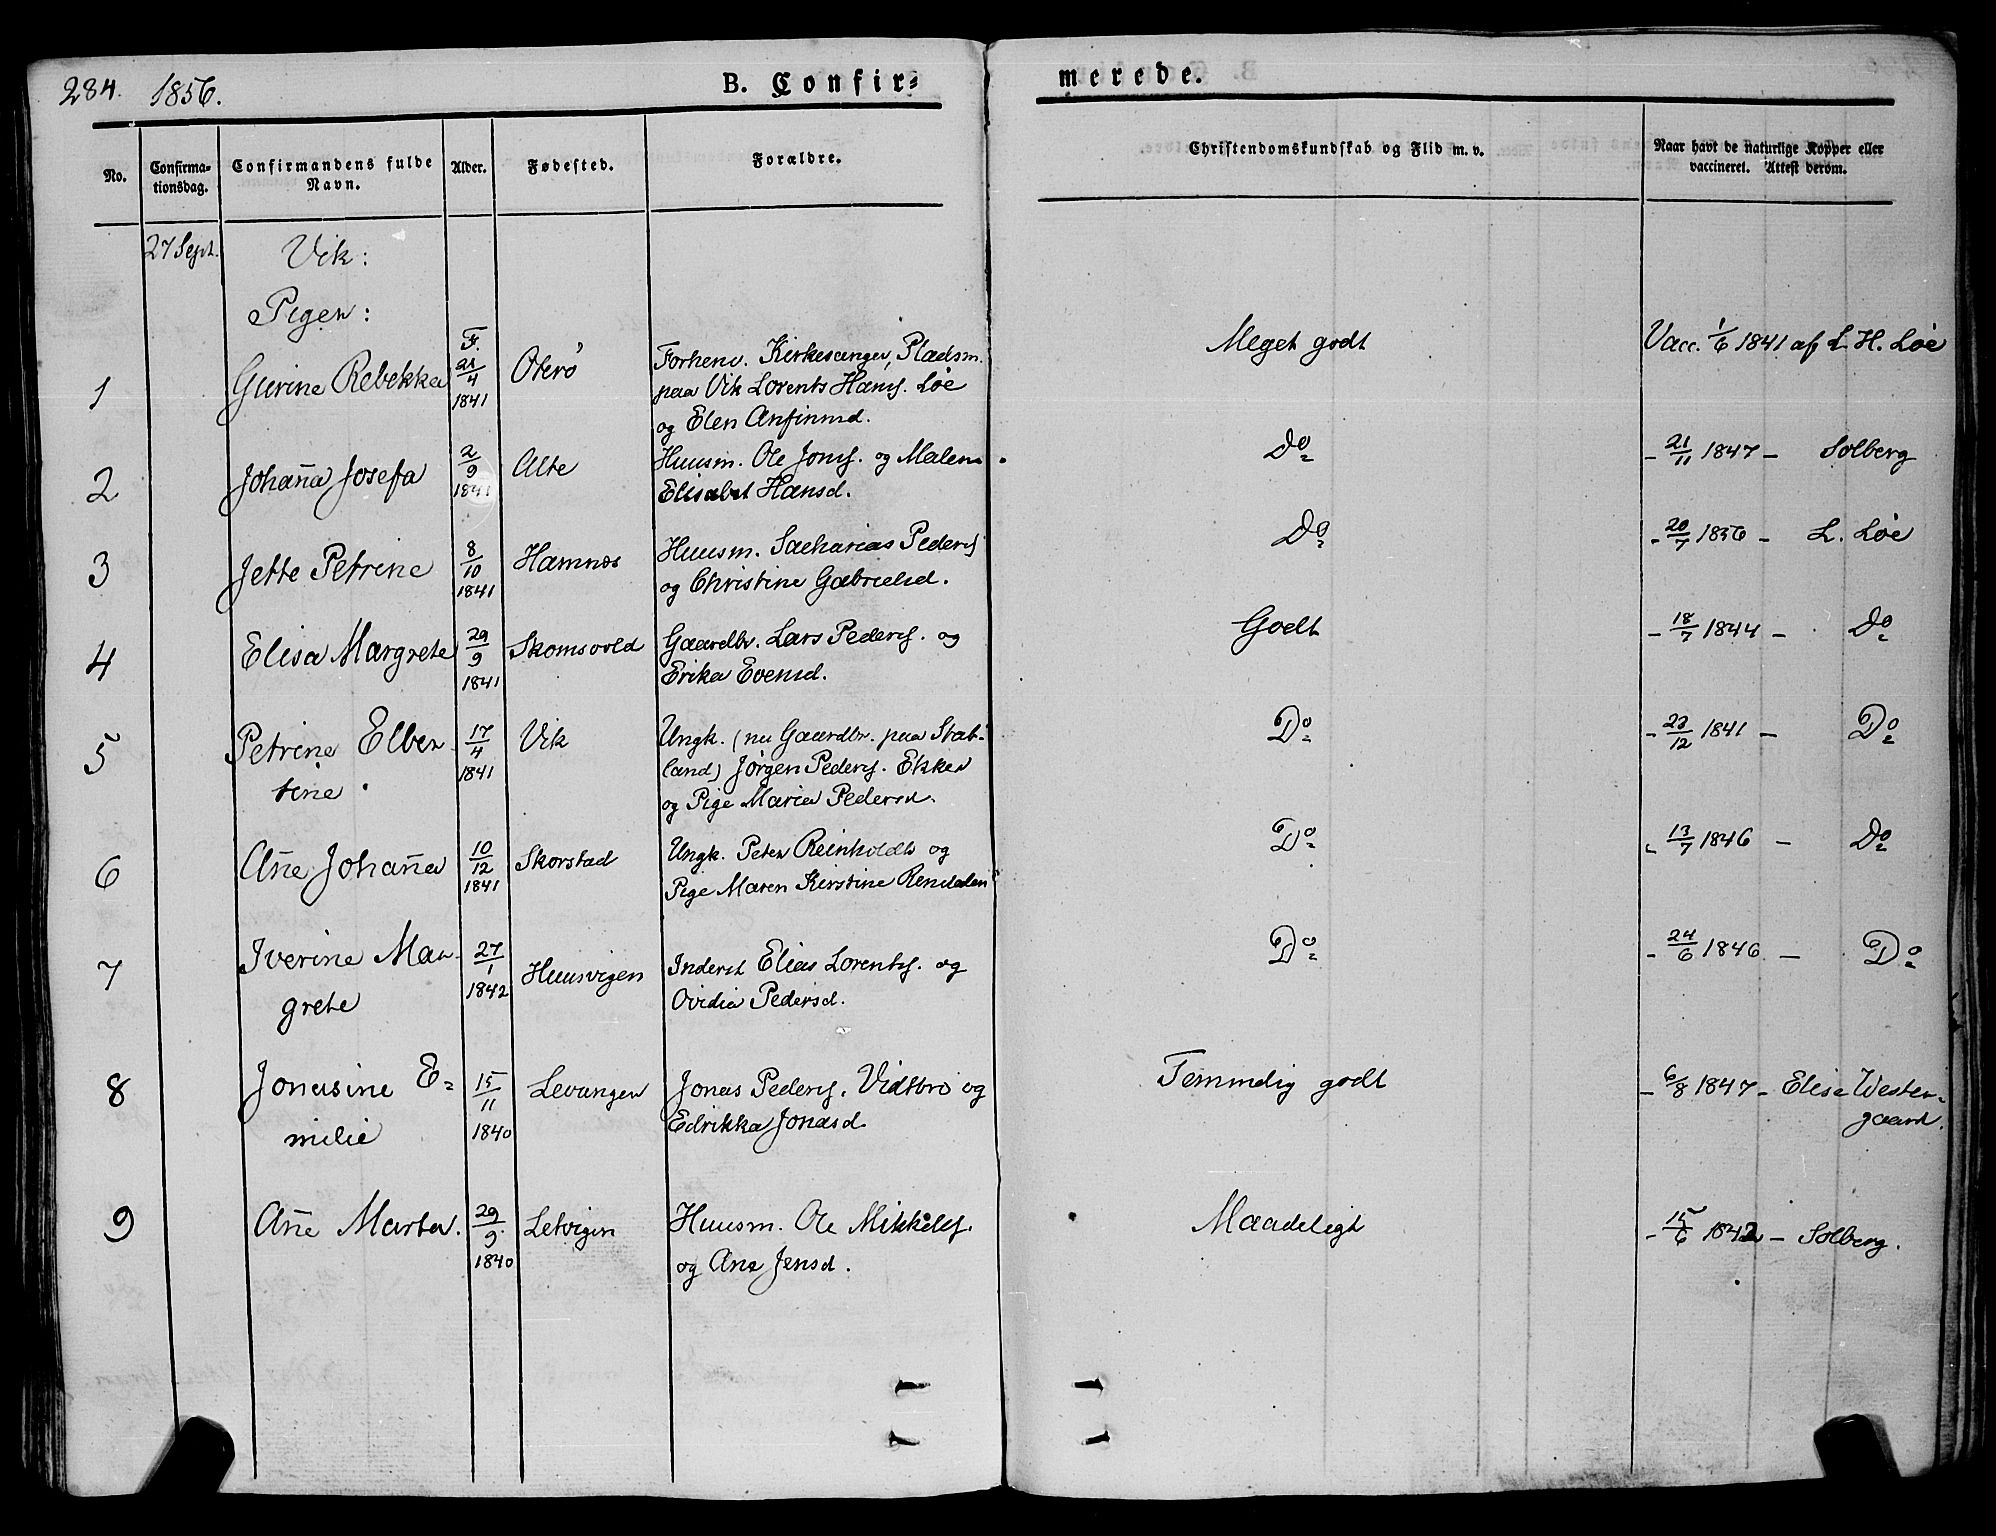 284. 1856.
B. Confir= merede.
No.
Confirma-
tionsdag.
Confirmandens fulde
Navn.
Alder.
Fødested.
Forældre.
Christendomskundskab og Flid m. v.
Naar havt de naturlige Kopper eller
vaccineret. Attest derom.
27 Sept. Vik:
Piger:
1 Gurine Rebekka F. 21/4 1841 Oterø
Forhenv. Kirkesanger, Pladsm.
paa Vik Lorents Hanss. Løe
og Elen Anfinnsd.
Meget godt Vacc. 1/6 1841 af L. H. Løe
2 Johan̄a Josefa 2/9 1841 Alte
Huusm. Ole Jonss. og Malena
Elisabet Hansd.
Do - 21/11 1847 - Solberg
3 Jette Petrine 8/10 1841 Hamnæs
Huusm. Sacharias Peders
og Christine Gabrielsd.
Do - 20/7 1856 - L. Løe
4 Elisa Margrete 29/9 1841 Skomsvold
Gaardbr. Lars Peders. og
Erika Evensd.
Godt - 18/7 1844 - Do
5 Petrine Elber-
tine 17/4 1841 Vik
Ungk. (nu Gaardbr. paa Stat-
land) Jørgen Peders. Ekker
og Pige Maria Pedersd.
Do - 22/12 1841 - Do
6 An̄e Johan̄a 10/12 1841 Skorstad
Ungk. Peter Reinholdts og
Pige Maren Kirstine
Do - 13/7 1846 - Do
7 Iverine Mar-
grete 27/1 1842 Huusvigen
Inderst Elias Lorents. og
Ovidia Pedersd.
Do - 24/6 1846 - Do
8 Jonasine E=
milie 15/11 1840 Levangen
Jonas Peders. Vidsbro og
Edrikka Jonasd
Temmelig godt - 6/8 1847 - Elise Wester-
gaard.
9 An̄e Marta. 29/9 1840 Letvigen
Huusm. Ole Mikkels.
og Ane Jensd.
Maadeligt - 15/6 1842 - Solberg.